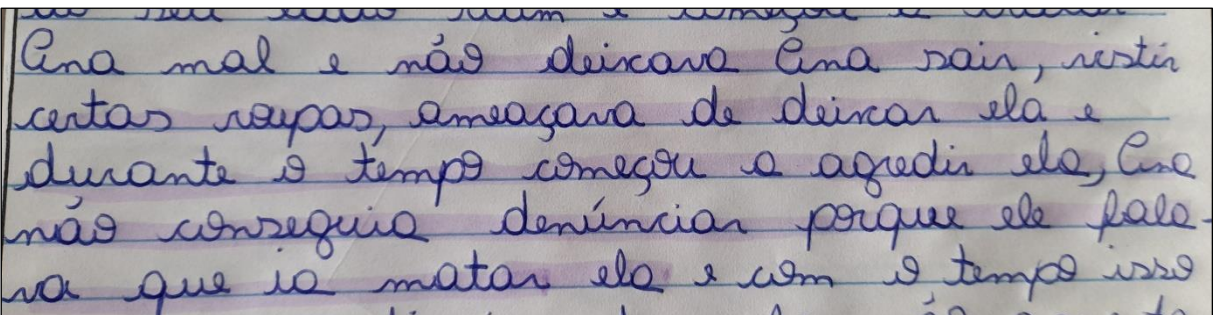 Ana mal e não deixava Ana sair, vistir
certas roupas, ameaçava de deixar ela e
durante o tempo começou a agredir ela, Ana
não conseguia denúnciar porque ele fala-
va que ia matar ela e com o tempo isso